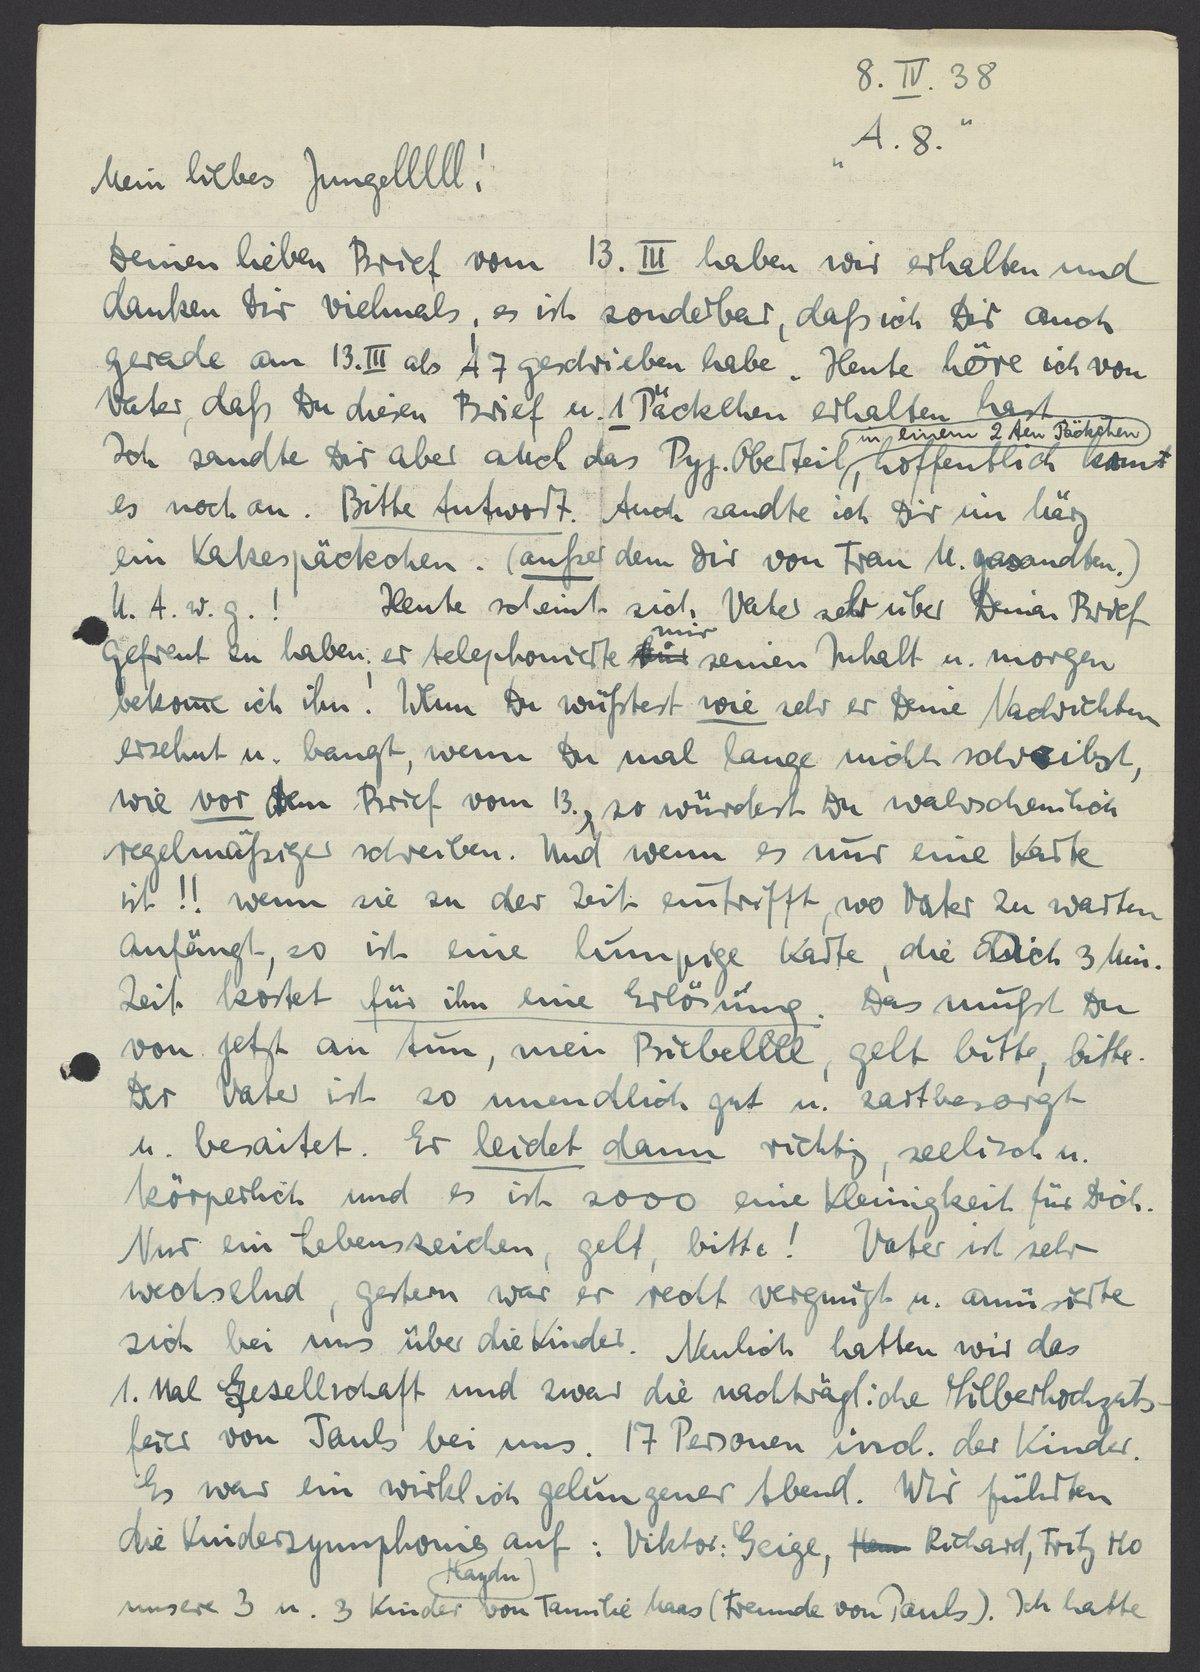 8. IV. 38
„A. 8.“
Mein liebes Jungelllll!
Deinen lieben Brief vom 13. III haben wir erhalten und
danken Dir vielmals, es ist sonderbar, daß ich Dir auch
gerade am 13. III als A 7 geschrieben habe. Heute höre ich von
Vater, daß Du diesen Brief u. 1 Päckchen erhalten hast
in einem 2ten Päckchen
Ich sandte Dir aber auch das Pyj. Oberteil, hoffentlich komt
es noch an. Bitte Antwort. Auch sandte ich Dir im März
ein Kakespäckchen. (außer dem Dir von Frau M. gesandten.)
U. A. w. g.! Heute scheint sich Vater sehr über Deinen Brief
mir
gefreut zu haben; er telephonierte seinen Inhalt u. morgen
bekome ich ihn! Wenn Du wüßtest wie sehr er Deine Nachrichten
ersehnt u. bangt, wenn Du mal lange nicht schreibst,
wie vor dem Brief vom 13., so würdest Du wahrscheinlich
regelmäßiger schreiben. Und wenn es nur eine Karte
ist!! wenn sie zu der Zeit eintrifft, wo Vater zu warten
anfängt, so ist eine lumpige Karte, die Dich 3 Min.
Zeit kostet für ihn eine Erlösung. Das mußt Du
von jetzt an tun, mein Buebellll, gelt bitte, bitte.
Der Vater ist so unendlich gut u. zartbesorgt
u. besaitet. Er leidet dann richtig, seelisch u.
körperlich und es ist sooo eine Kleinigkeit für Dich.
Nur ein Lebenszeichen, gelt, bitte! Vater ist sehr
wechselnd, gestern war er recht vergnügt u. amüsierte
sich bei uns über die Kinder. Neulich hatten wir das
1. Mal Gesellschaft und zwar die nachträgliche Silberhochzeits-
feier von Pauls bei uns. 17 Personen incl. der Kinder.
Es war ein wirklich gelungener Abend. Wir führten
die Kindersymphonie auf: Viktor: Geige, Richard, Fritz Mo
Haydn
unsere 3 u. 3 Kinder von Familie Maas (Freunde von Pauls). Ich hatte